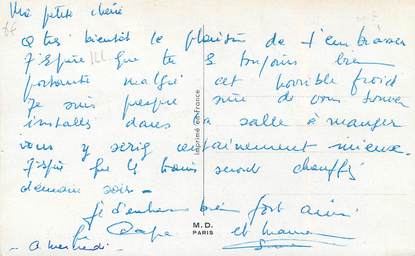 Ma petite chérie
A très bientôt le plaisir de t'embrasser
J'espère que tu es toujours bien
portante malgré cet horrible froid
Je suis presque sûre de vous trouver
installés dans la salle à manger
vous y serez certainement mieux.
J'espère que les trains seront chauffés
demain soir -
Je t'embrasse bien fort ainsi
Papa et maman
- A mercredi -
Imprimé en France
M. D.
PARIS